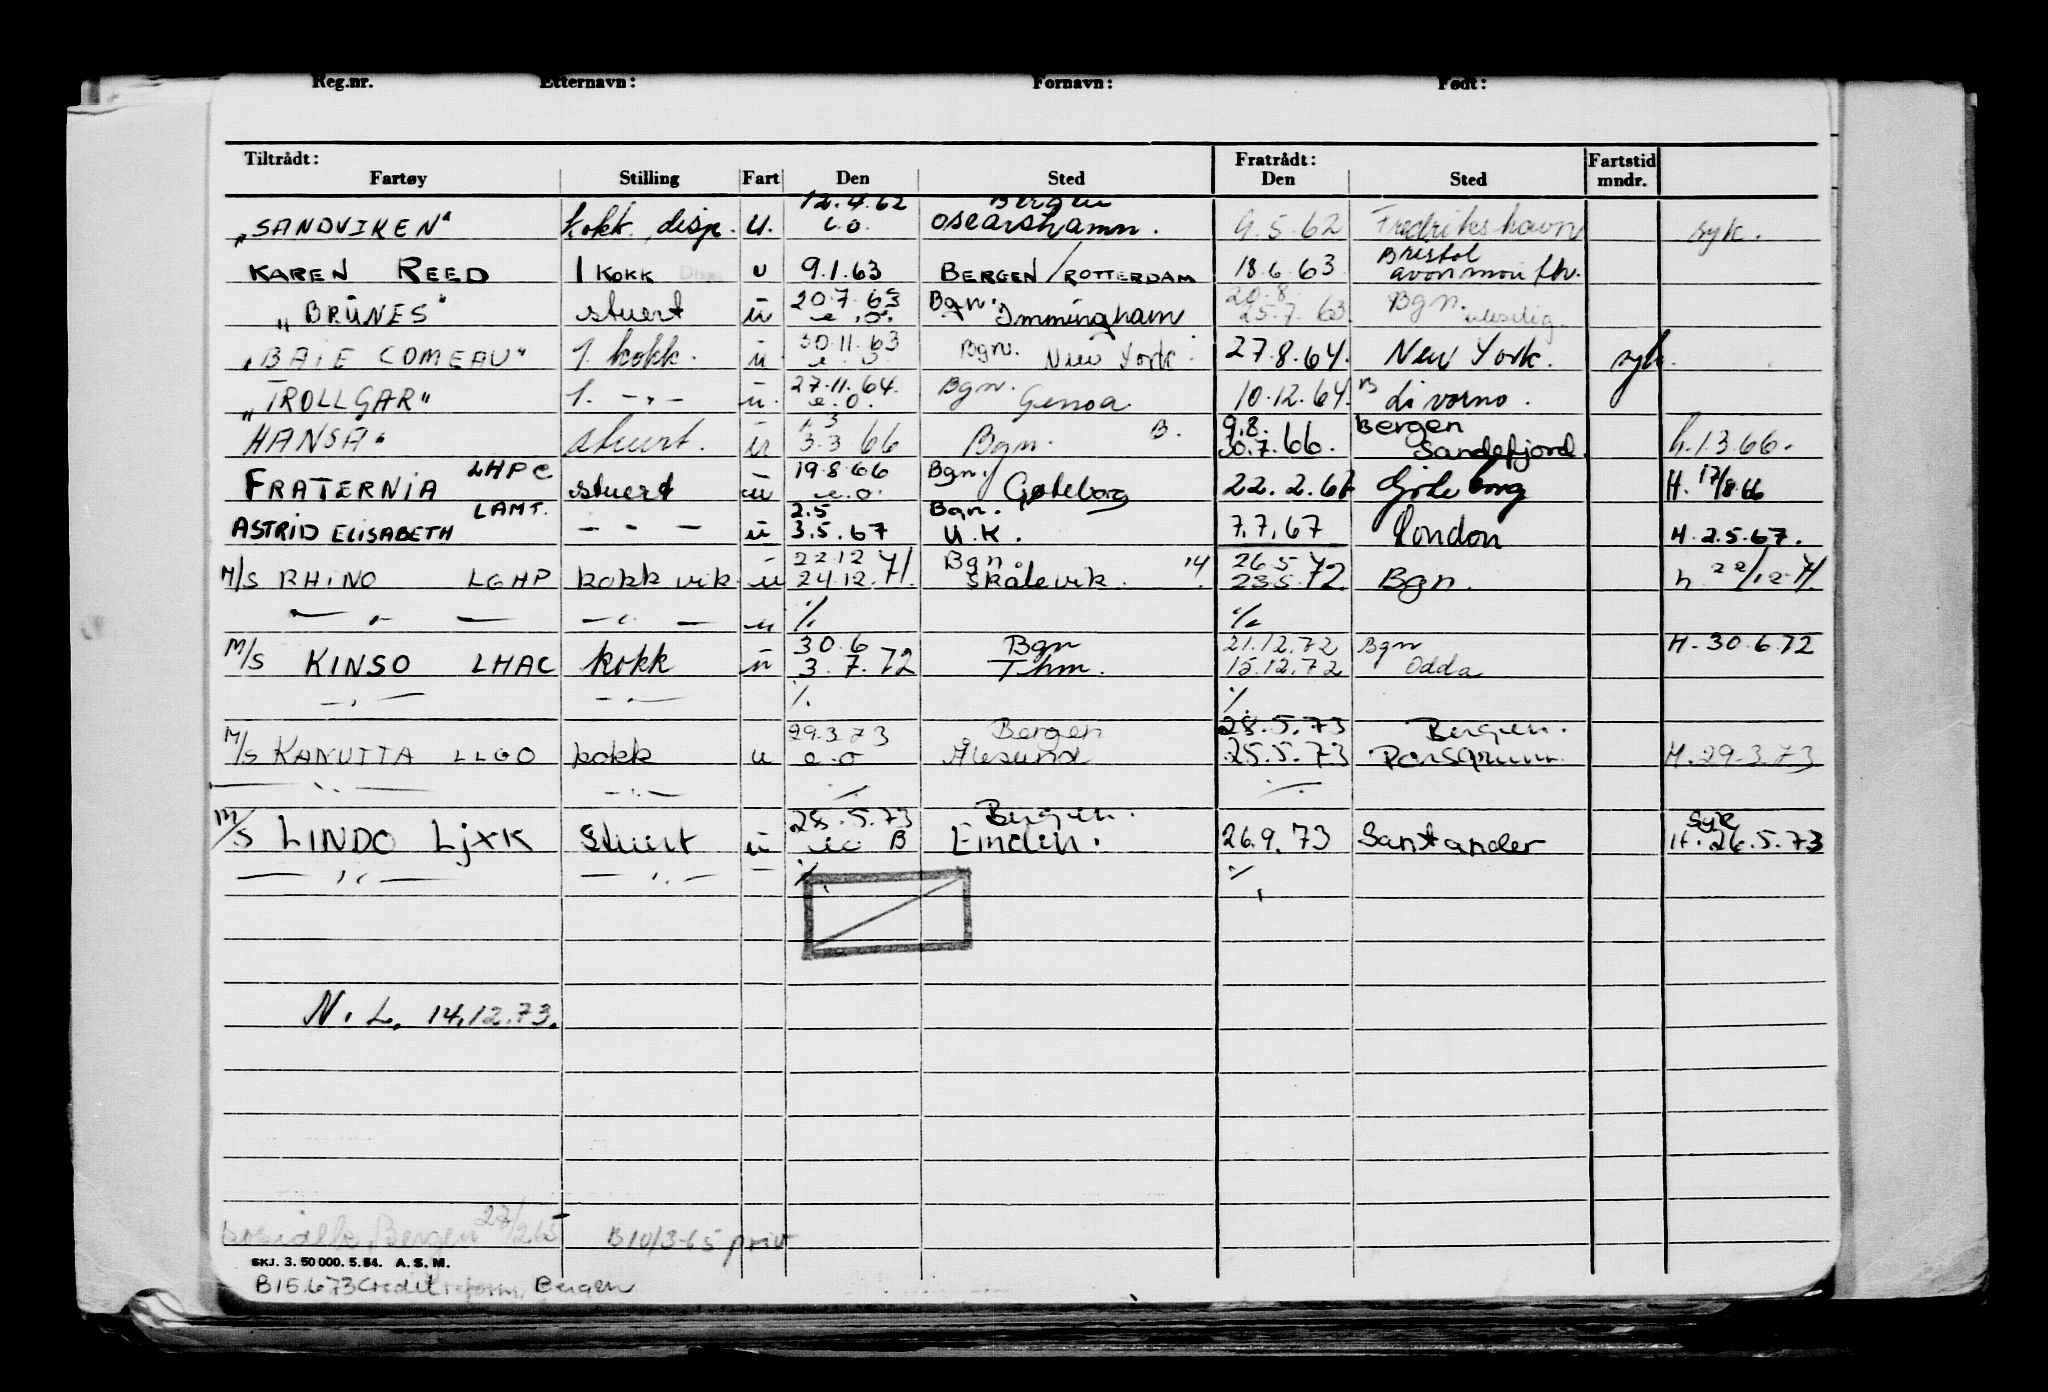 Reg.nr. Etternavn: Fornavn: Født:
Tiltrådt: Fratrådt: Fartstid
Fartøy Stilling Fart Den Sted Den Sted mndr.
12.4.62 Bergen
"SANDVIKEN" kokk disp. u. e.o. Oscarshamn. 9.5.62 Fredrikshavn syk.
KAREN REED 1 KOKK Disp u 9.1.63 BERGEN/ROTTERDAM 18.6.63 Bristol avonmouth.
20.7.63 Bgn. 20.8.
"BRUNES" stuert u e.o. Immingham 25.7.63 Bgn.
30.11.63 Bgn.
"BAIE COMEAU" 1. kokk. u e.o New York. 27.8.64. New York. syk.
27.11.64. Bgn.
"TROLLGAR" 1. -"- u. e.o. Genoa. 10.12.64. Livorno.
1.3 B. 9.8. Bergen
HANSA" stuert. u 3.3 66 Bgn. 30.7.66. Sandefjord. h.1.3.66.
LHPC 19.8.66 Bgn.
FRATERNIA stuert u e.o. Gøteborg 22.2.67 Göteborg H. 17/8.66
LAMT. 2.5 Bgn.
ASTRID ELISABETH - " - u 3.5.67 U.K. 7.7.67 London H.2.5.67.
22.12 Bgn. 26.5
M/S RHINO LGHP kokk vik. u 24.12.71. Skålevik. 14. 23.5.72 Bgn. h. 22/12-71.
— " — — " — u ./. ./.
30.6 Bgn 21.12.72 Bgn H.30.6.72
M/S KINSO LHAC kokk u 3.7.72 Thm. 15.12.72 Odda
-"- -"- ./. ./.
29.3.73 Bergen 28.5.73 Bergen.
M/S KANUTTA LLGO kokk u e.o Ålesund 25.5.73 Porsgrunn. H.29.3.73
-"- -"- ./. ./.
28.5.73 Bergen. Syk
M/S LINDO LJXK Stuert u eo B Emden. 26.9.73 Santander H.26.5.73
— " — — " — - ./. ./.
N.L. 14.12.73.
Bergen B10/3-65 priv
SKJ. 3. 50 000. 5. 54. A. S. M.
B15.6.73 Creditreform, Bergen